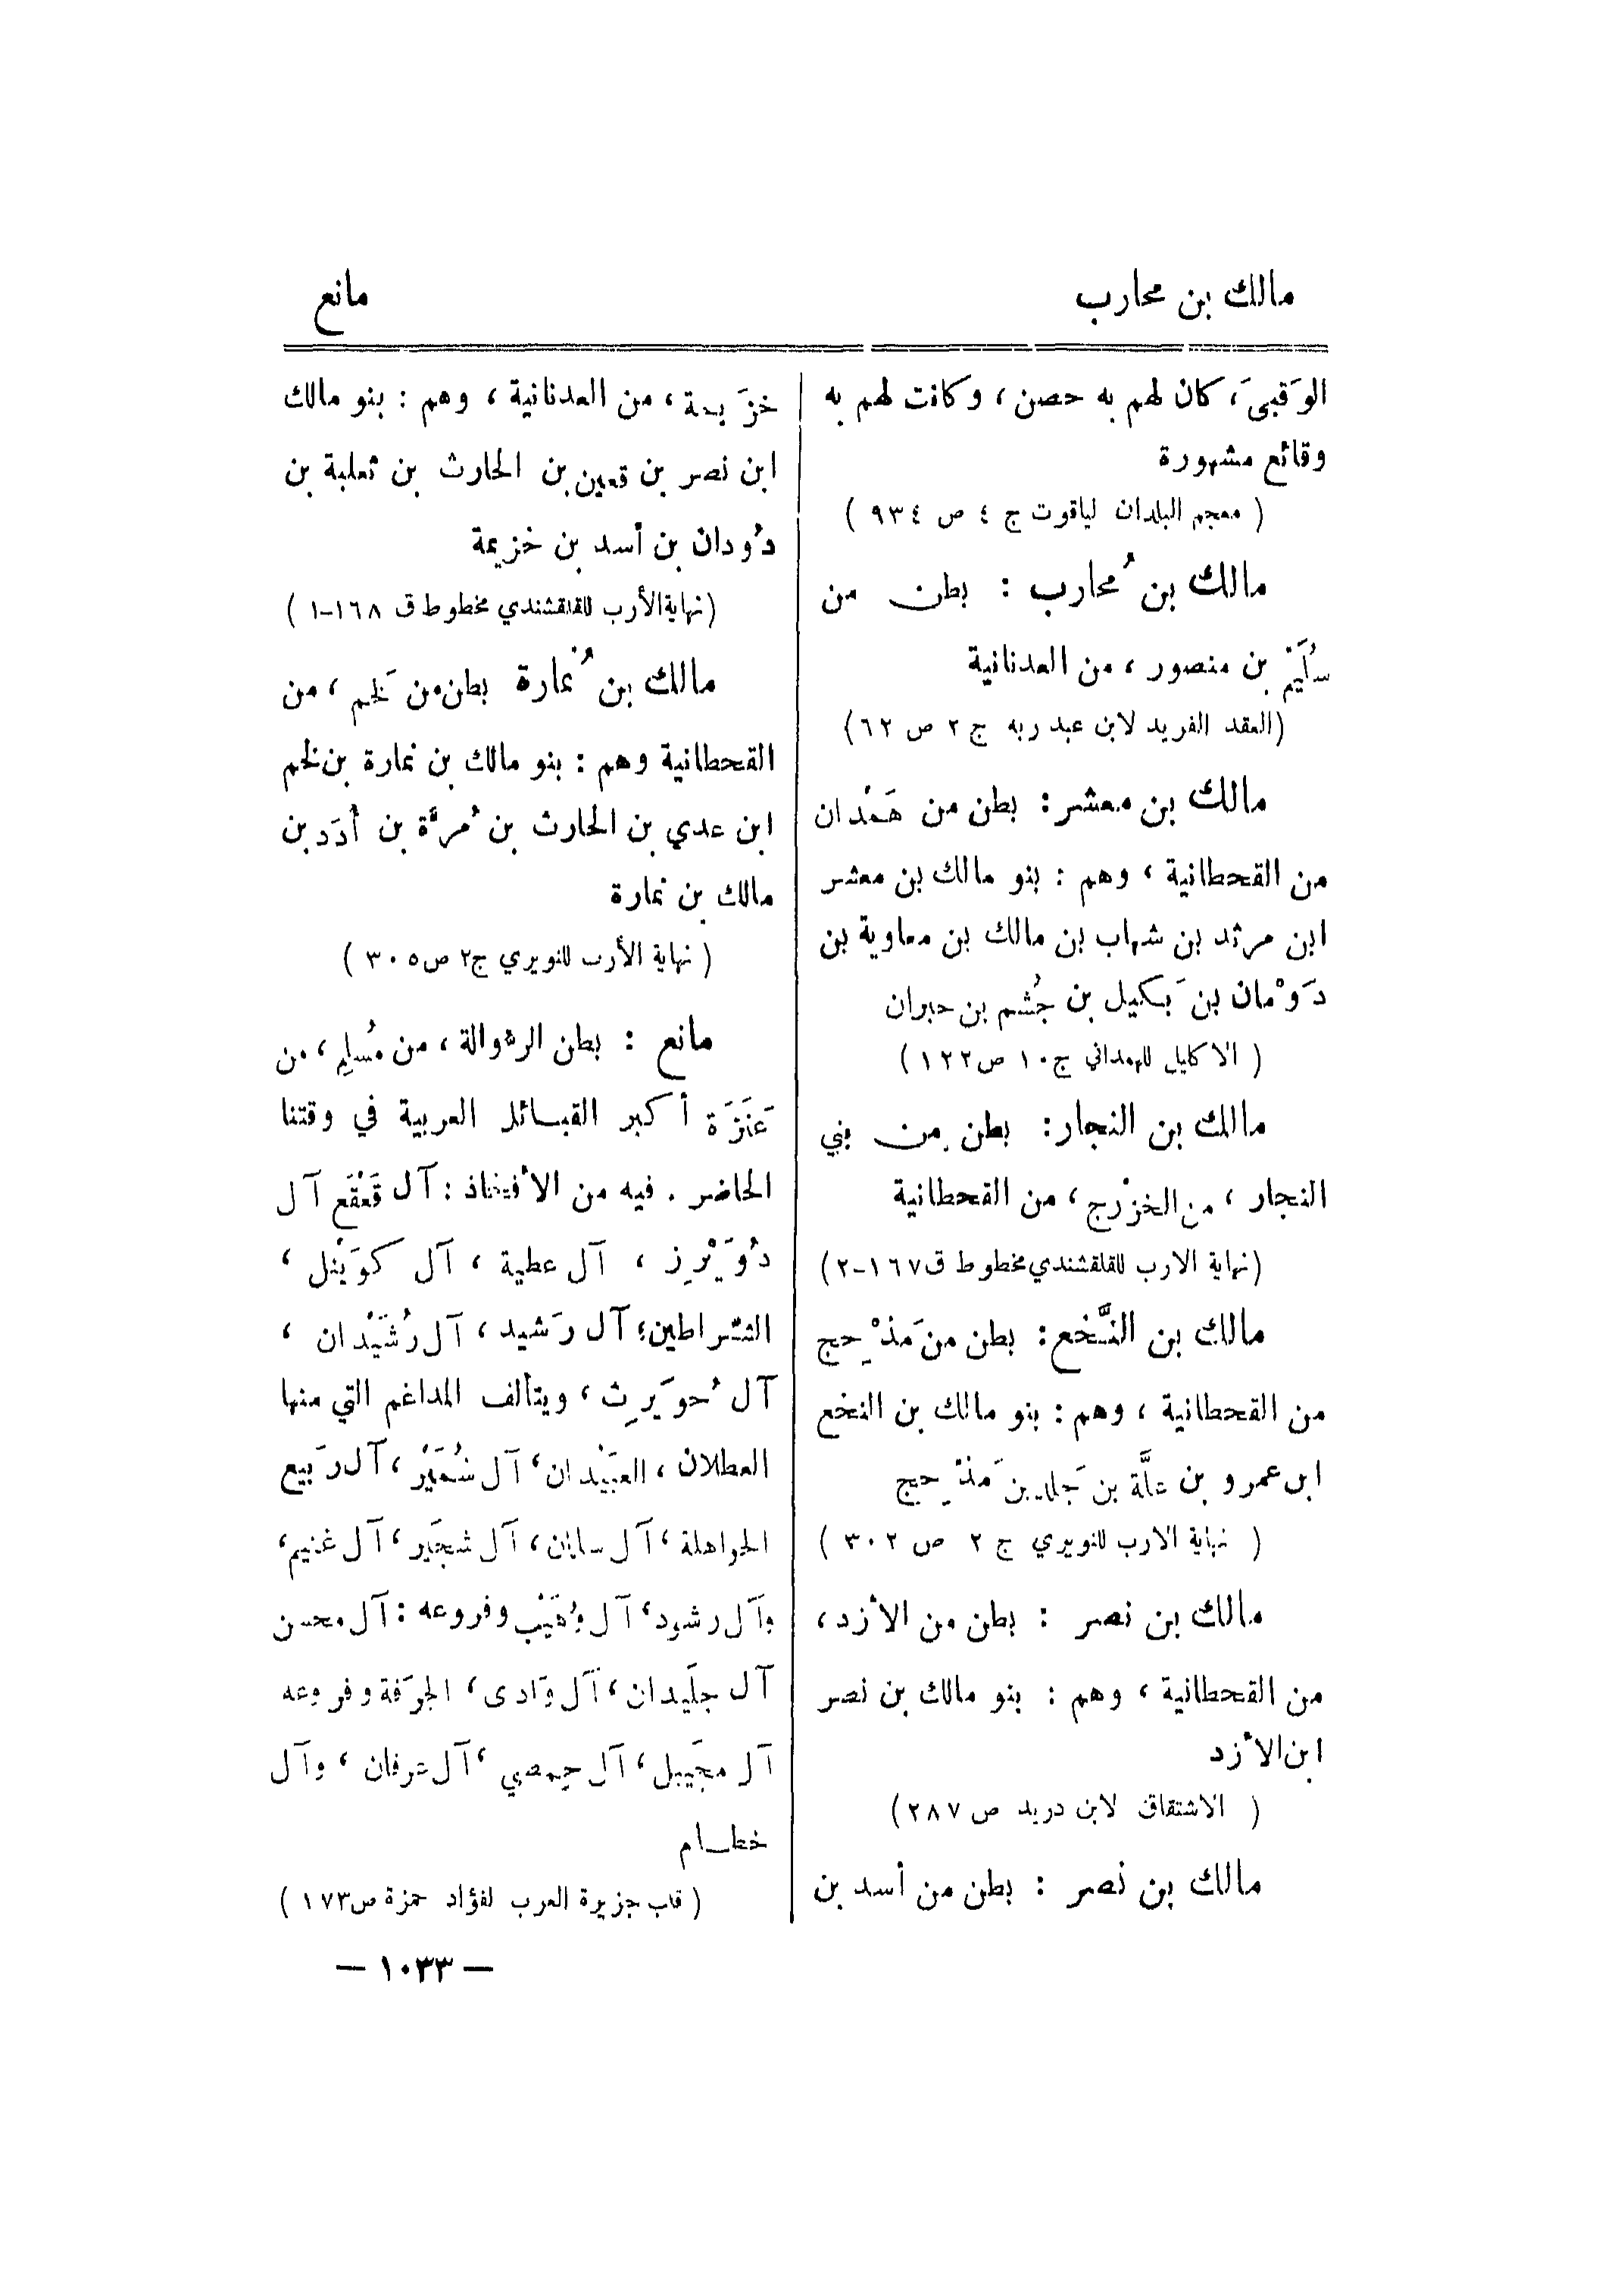 مالك بن محارب
مانع
الوَقبىَ، كان لهم به حصن، وكانت لهم به
وقائع مشهورة
( معجم البلدان لياقوت ج ٤ ص ٩٣٤ )
مالك بن مُحارب : بطن من
سُلَيْم بن منصور ، من العدنانية
(العقد الفريد لابن عبد ربه ج ٢ ص ٦٢)
مالك بن معشر : بطن من هَمْدان
من القحطانية ، وهم : بنو مالك بن معشر
ابن مرثد بن شهاب بن مالك بن معاوية بن
دَوْمان بن بَكيل بن جُشم بن حبران
( الاكليل للهمداني ج١٠ ص١٢٢ )
مالك بن النجار: بطن من بني
النجار ، من الخزْرج ، من القحطانية
(نهاية الارب للقلقشندي مخطوط ق١٦٧-٢)
مالك بن النَّخع: بطن من مَذْحِج
من القحطانية ، وهم : بنو مالك بن النخع
ابن عمرو بن علَّة بن جَلد بن مَذْحِج
( نهاية الارب للنويري ج ٢ ص ٣٠٢ )
مالك بن نصر : بطن من الأزد ،
من القحطانية ، وهم : بنو مالك بن نصر
ابن الأزد
( الاشتقاق لابن دريد ص ٢٨٧)
مالك بن نصر : بطن من أسد بن
خزَيمة ، من العدنانية ، وهم : بنو مالك
ابن نصر بن قعين بن الحارث بن ثعلبة بن
دُودان بن أسد بن خزيمة
(نهاية الأرب للقلقشندي مخطوط ق ١٦٨-١ )
مالك بن نُمارة بطن من لَخم ، من
القحطانية وهم : بنو مالك بن نمارة بن لخم
ابن عدي بن الحارث بن مُرَّة بن أُدَد بن
مالك بن نمارة
( نهاية الأرب للنويري ج٢ ص٣٠٥ )
مانع : بطن الرُّوالة ، من مُسلِم ، من
عَنَزَة أكبر القبائل العربية في وقتنا
الحاضر . فيه من الأفخاذ : آل قَعْقَع آل
دُوَيْرِز ، آل عطية ، آل كوَيْثل ،
الشَّراطين؛ آل رَشيد ، آل رُشَيْدان ،
آل حُويَرِث ، ويتألف المداغم التي منها
العطلان ، العبَيْدان ، آل شُمَيْر ، آل رَبيع
الجواهلة ، آل سلمان ، آل شجَير ، آل غنيم ،
وآل رشود ، آل وُهَيْب وفروعه : آل محسن
آل جلَيدان ، آل وَادى ، الجرَفة وفروعه
آل مجَيبل ، آل حِمصي ، آل عرفان ، وآل
خطام
( قلب جزيرة العرب لفؤاد حمزة ص١٧٣ )
— ١٠٣٣ —